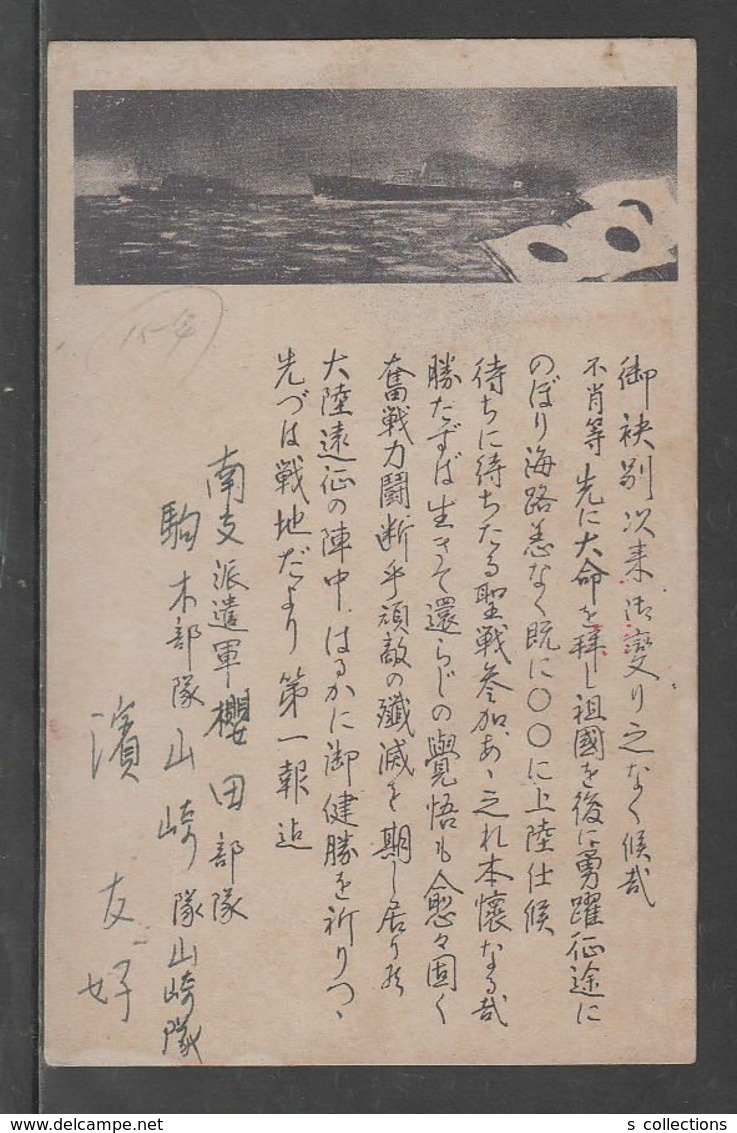 御袂別以来御変り之なく候哉
不肖等 先に大命を拝し祖國を後に勇躍征途に
のぼり海路恙なく既に〇〇に上陸仕候
待ちに待ちたる聖戦参加、あゝ之れ本懐なる哉
勝たずば生きて還らじの覺悟も愈々固く
奮戦力闘断乎頑敵の殲滅を期し居り候
大陸遠征の陣中、はるかに御健勝を祈りつゝ
先づは戦地だより 第一報迄
南支派遣軍櫻田部隊
駒木部隊山崎隊山崎隊
濱 友好
15-4
s collections